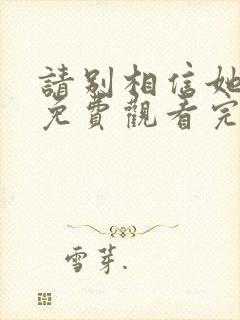 請别相信她
免費觀看完
雪芽.